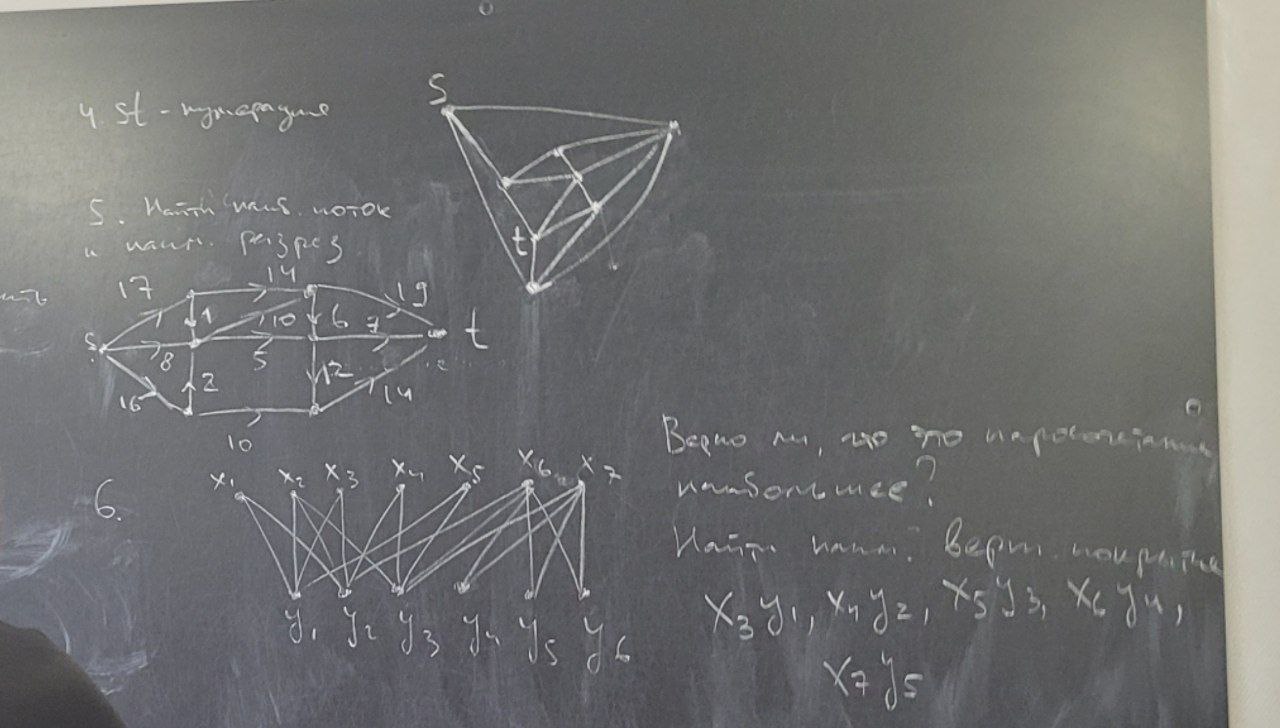 4. St - нумерация
S
t
5. Найти наиб. поток
и наим. разрез
17 14 19
1 10 6 7
S 8 5 t
2 12
16 14
10
6.
x₁ x₂ x₃ x₄ x₅ x₆ x₇
y₁ y₂ y₃ y₄ y₅ y₆
Верно ли, что это паросочетание
наибольшее?
Найти наим. верт. покрытие
x₃y₁, x₄y₂, x₅y₃, x₆y₄,
x₇y₅